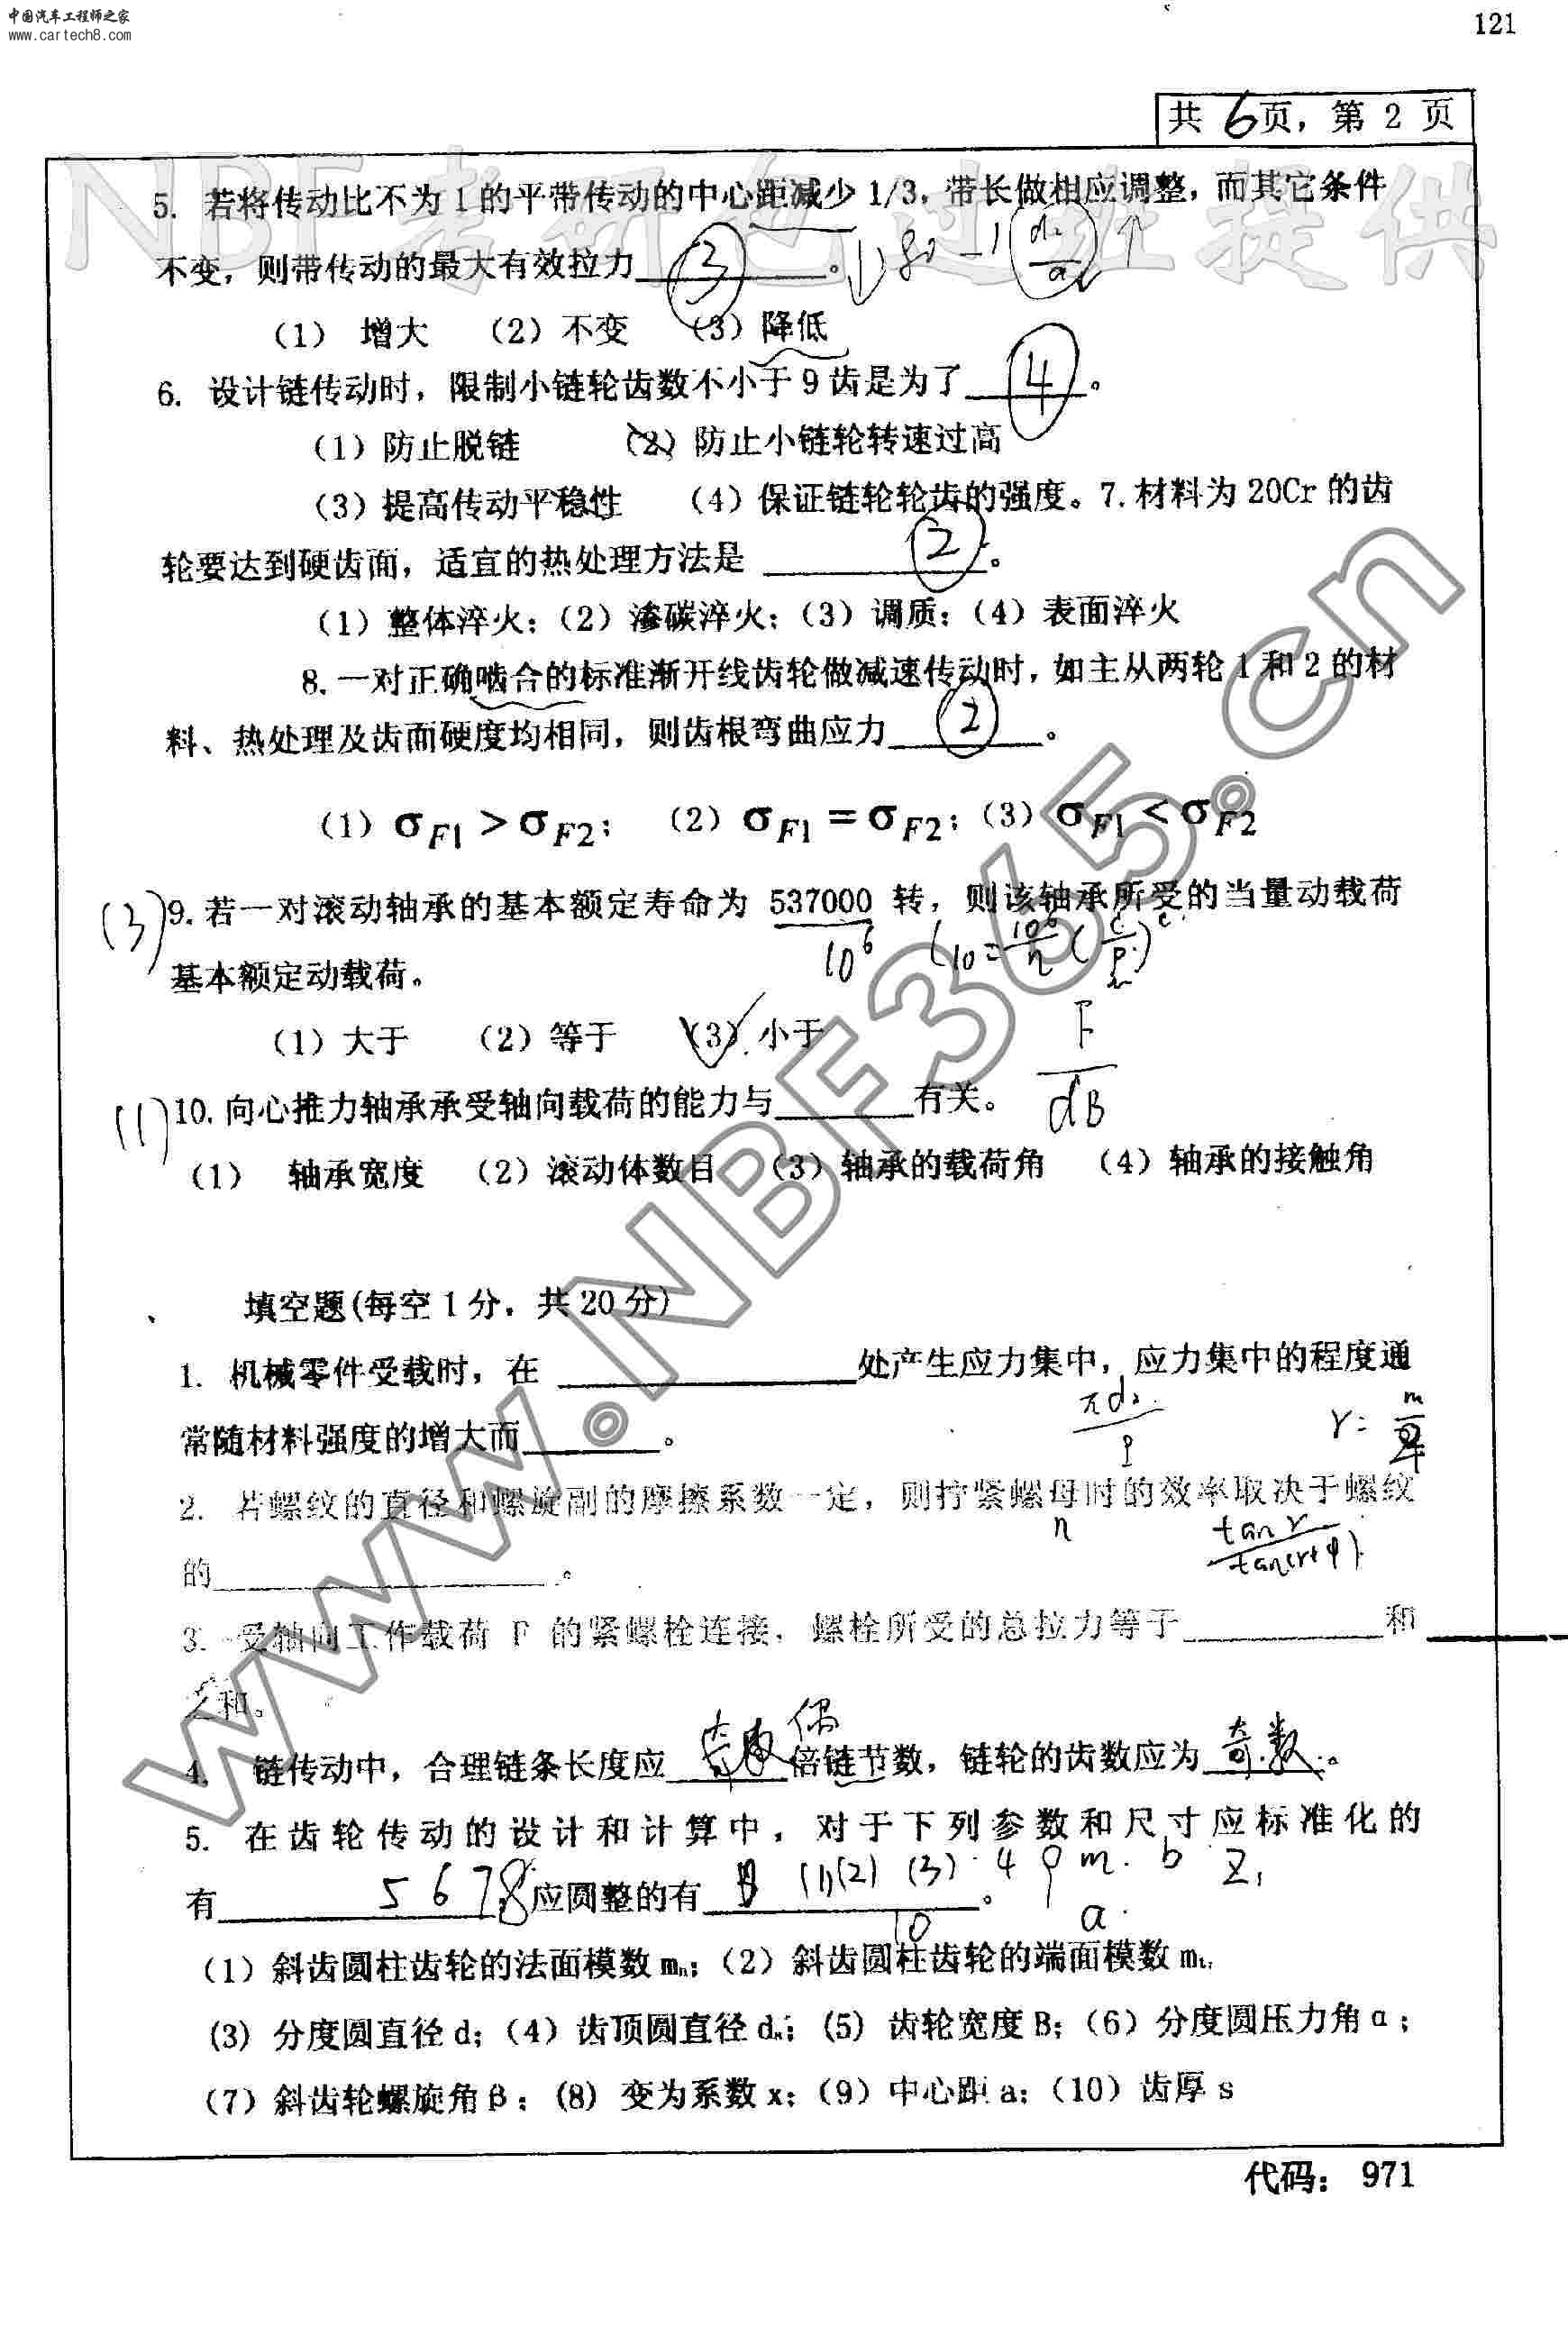 中国汽车工程师之家
www.cartech8.com
121
共 6 页，第 2 页
NBF考研包过班提供
5. 若将传动比不为 1 的平带传动的中心距减少 1/3，带长做相应调整，而其它条件
不变，则带传动的最大有效拉力 (3) 。↓ 80 - 1 (d₂/a) ↑
(1) 增大 (2) 不变 (3) 降低
6. 设计链传动时，限制小链轮齿数不小于 9 齿是为了 4 。
(1) 防止脱链 (2) 防止小链轮转速过高
(3) 提高传动平稳性 (4) 保证链轮轮齿的强度。7. 材料为 20Cr 的齿
轮要达到硬齿面，适宜的热处理方法是 2 。
(1) 整体淬火；(2) 渗碳淬火；(3) 调质；(4) 表面淬火
8. 一对正确啮合的标准渐开线齿轮做减速传动时，如主从两轮 1 和 2 的材
料、热处理及齿面硬度均相同，则齿根弯曲应力 2 。
(1) σF1 > σF2； (2) σF1 = σF2；(3) σF1 < σF2
(3) 9. 若一对滚动轴承的基本额定寿命为 537000 转，则该轴承所受的当量动载荷
基本额定动载荷。 10⁶
(1) 大于 (2) 等于 (3) 小于
F
dB
(1) 10. 向心推力轴承承受轴向载荷的能力与______有关。
(1) 轴承宽度 (2) 滚动体数目 (3) 轴承的载荷角 (4) 轴承的接触角
www.NBF365.cn
、 填空题(每空 1 分，共 20 分)
1. 机械零件受载时，在______处产生应力集中，应力集中的程度通
常随材料强度的增大而______。
2. 若螺纹的直径和螺旋副的摩擦系数一定，则拧紧螺母时的效率取决于螺纹
n
的______。
3. 受轴向工作载荷 F 的紧螺栓连接，螺栓所受的总拉力等于______和______
之和。
4. 链传动中，合理链条长度应 偶 倍链节数，链轮的齿数应为 奇数 。
5. 在齿轮传动的设计和计算中，对于下列参数和尺寸应标准化的
有 5 6 7 8 应圆整的有 (1)(2) (3) 4 10 。 9 m. b Z₁ a.
(1) 斜齿圆柱齿轮的法面模数 mn；(2) 斜齿圆柱齿轮的端面模数 mt，
(3) 分度圆直径 d；(4) 齿顶圆直径 da；(5) 齿轮宽度 B；(6) 分度圆压力角 α；
(7) 斜齿轮螺旋角 β；(8) 变为系数 x；(9) 中心距 a；(10) 齿厚 s
代码： 971